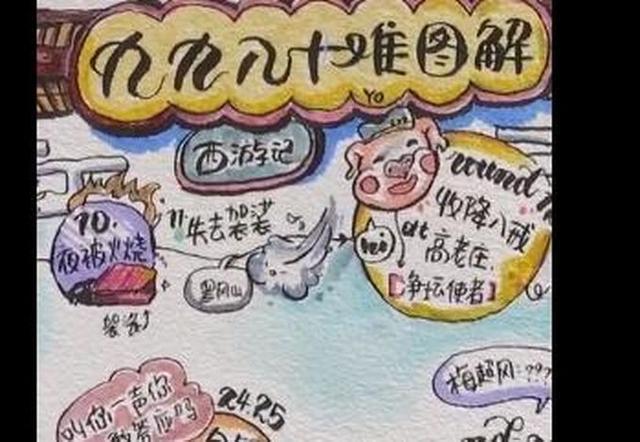 九九八十难图解
YO
西游记
10.
夜被火烧
11.
失去袈裟
黑风山
袈裟
round
收降八戒
at
高老庄
【净坛使者】
梅超风:???
叫你一声你
敢答应吗
24.25